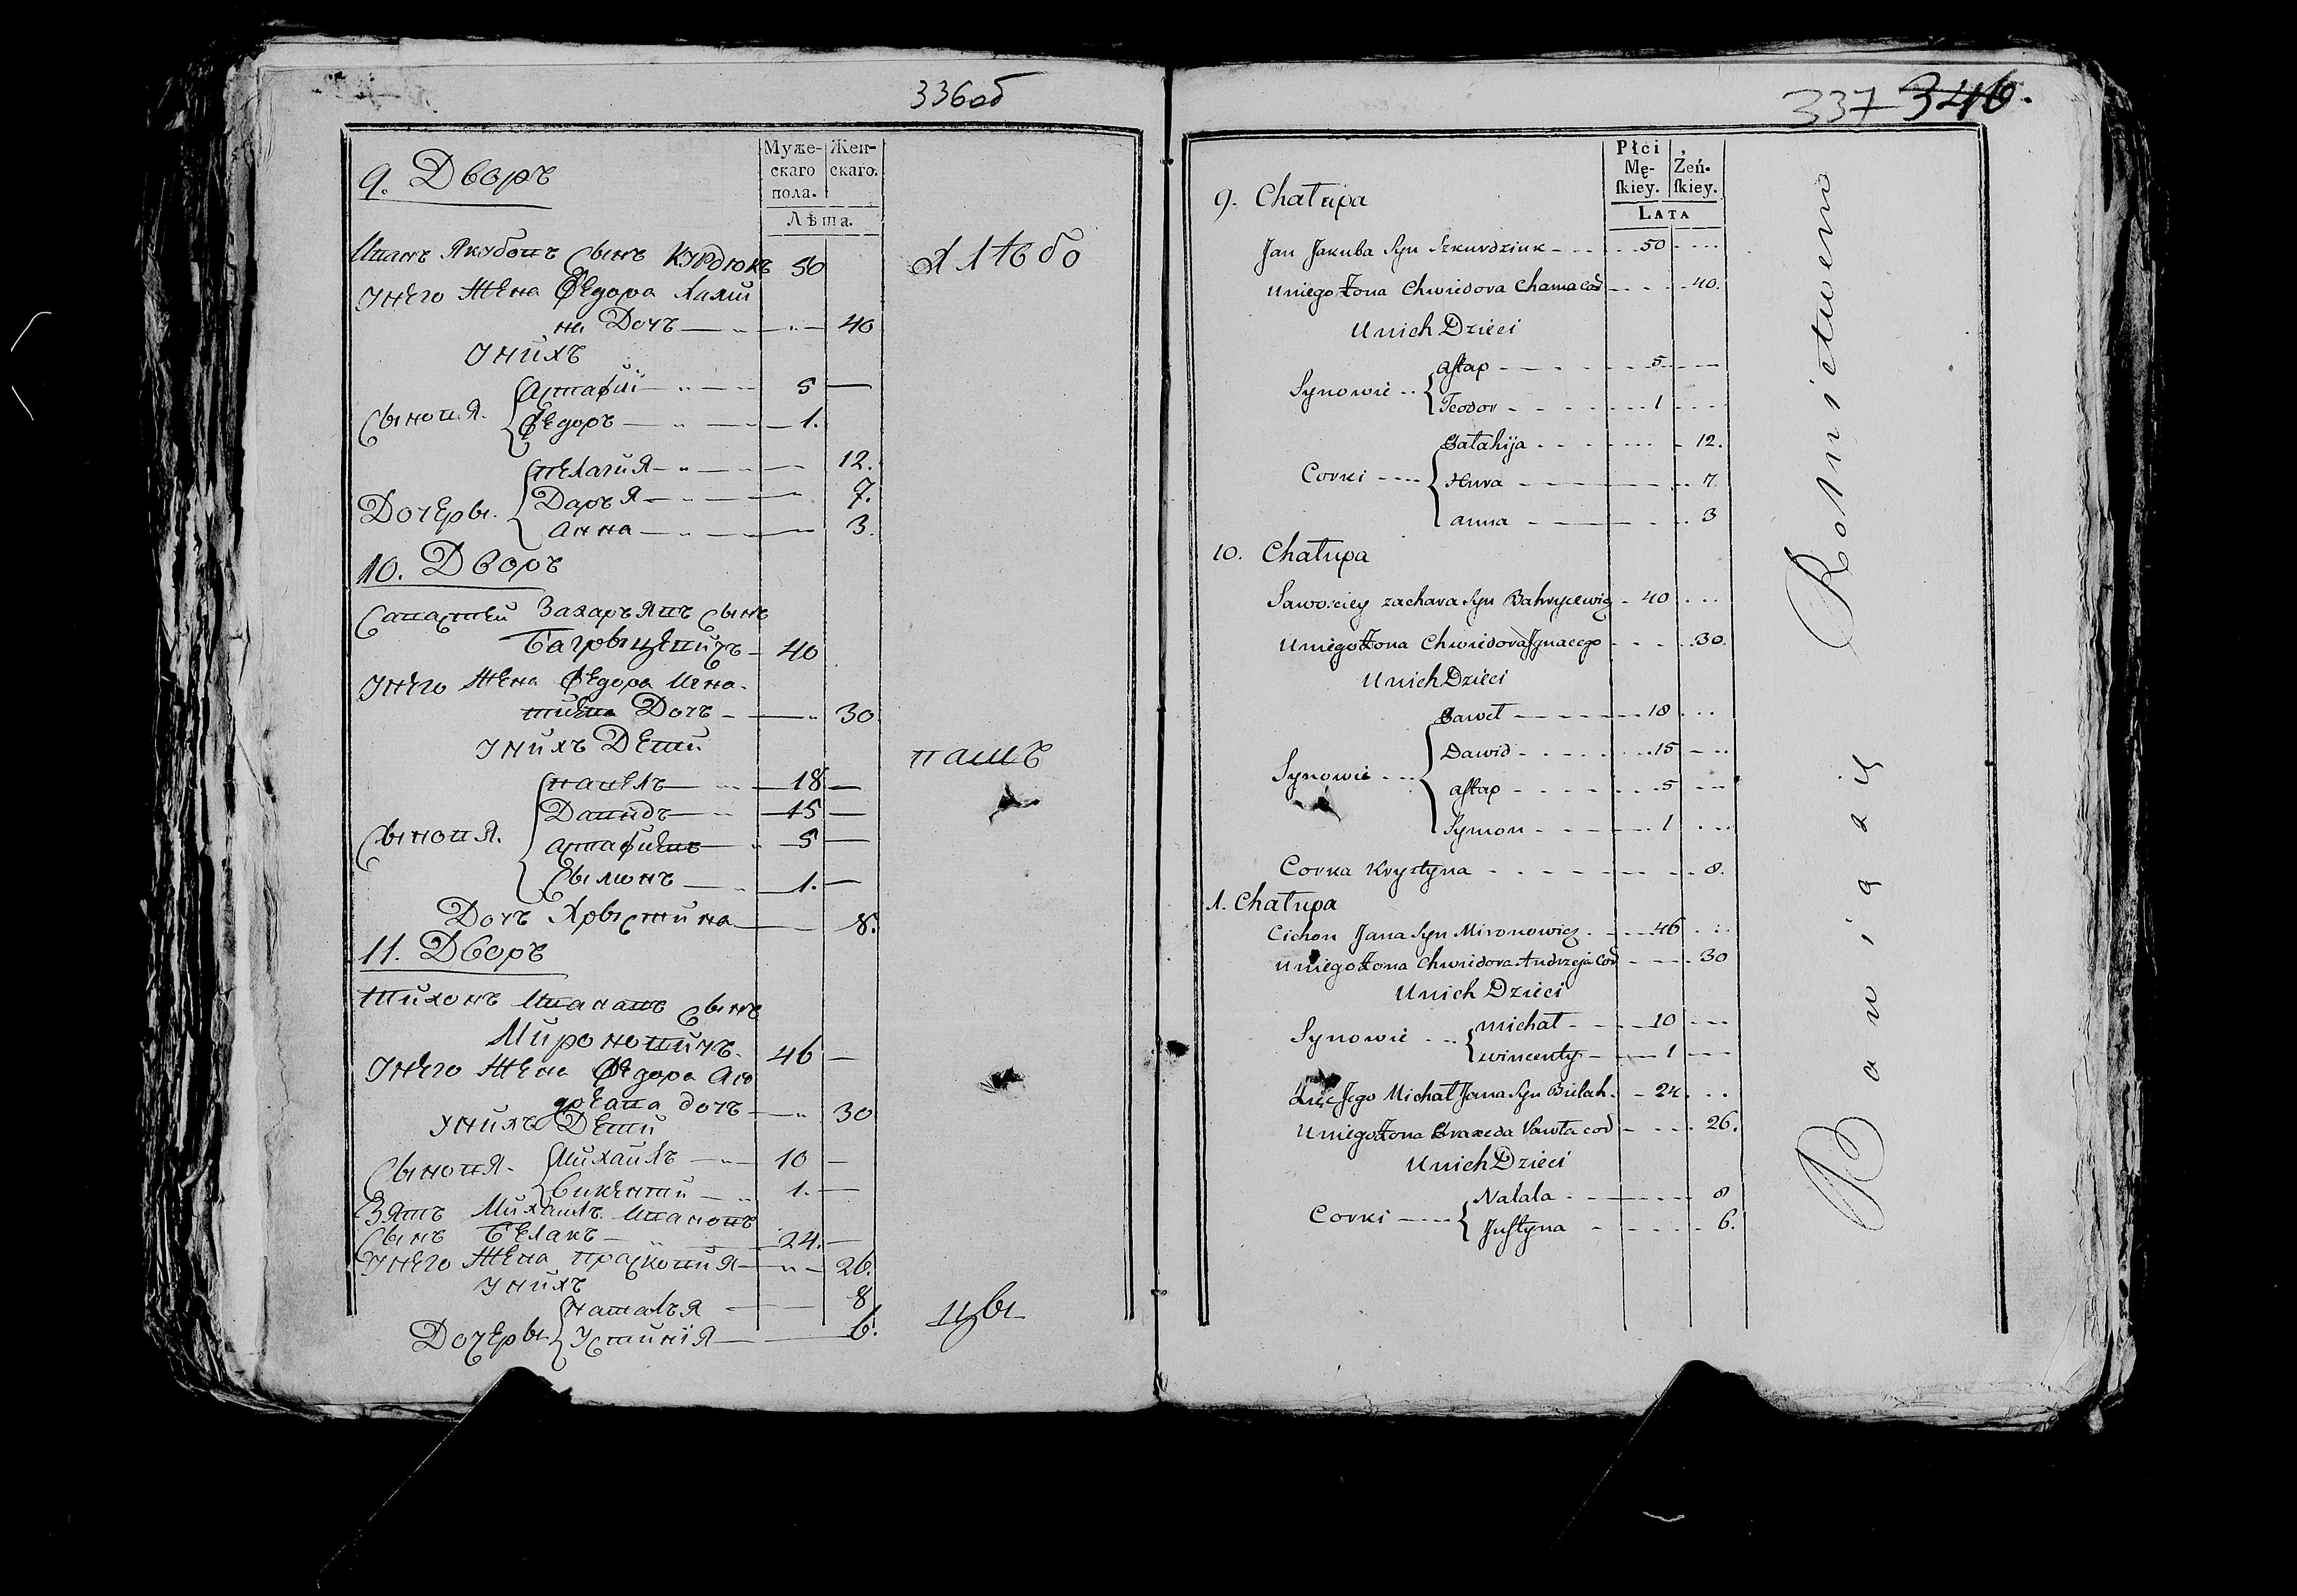 336об
9. Дворъ
Муже-
скаго
пола.
Жен-
скаго.
Лѣта.
Иванъ Якубовъ Сынъ Курдюкъ 50
Унего Жена Федора Хами
на Дочъ 40
Унихъ
Сыновя.
Астафий 5
Федоръ 1.
Дочеры.
пелагия 12.
Даръя 7.
Анна 3.
10. Дворъ
Савастей Захаръявъ Сынъ
Багрыцевичъ 40
Унего Жена Федора Игна-
тиева Дочъ 30
Унихъ Дети
Сыновя.
павелъ 18
Давидъ 15
Астафиевъ 5
Сымонъ 1.
Дочъ Хрыстина 8.
11. Дворъ
Тихонъ Иванавъ Сынъ
Мироновичъ 46
Унего Жена Федора Ан
дреева дочъ 30
Унихъ Дети
Сыновя.
Михаилъ 10
Викентий 1.
Зять Михаилъ Ивановъ
Сынъ Белахъ 24.
Унего Жена Прасковия 26.
Унихъ
Дочеры
Наталъя 8
Устиния 6.
хлѣбо
пашъ
цы
337 346.
Płci
Mę-
skiey.
Żeń-
skiey.
LATA
9. Chałupa
Jan Jakuba Syn Szkurdziuk 50
Uniego Żona Chwiedora Chama Cod 40.
Unich Dzieci
Synowie
Astap 5
Teodor 1
Corki
Pałahija 12.
Hura 7
Anna 3
10. Chałupa
Sawosciey Zachara Syn Bahrycewicz 40
Uniego Żona Chwiedora Jgnacego 30.
Unich Dzieci
Synowie
Paweł 18
Dawid 15
Astap 5
Symon 1
Corka Krystyna 8.
1. Chałupa
Cichon Jana Syn Mironowicz 46
Uniego Żona Chwiedora Andrzeja Cod 30
Unich Dzieci
Synowie
Michał 10
Wincenty 1
Zięć Jego Michał Jana Syn Bielah 24.
Uniego Żona Praxeda Pawła cod 26.
Unich Dzieci
Corki
Natala 8
Justyna 6.
Bawiący Rolnictwem